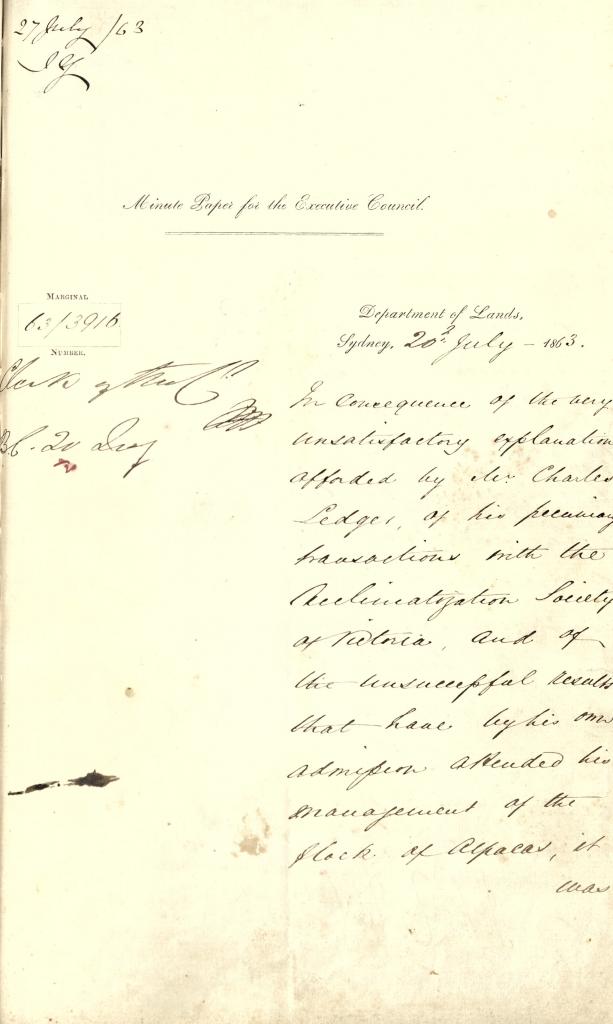 27 July /63
Minute Paper for the Executive Council.
MARGINAL
63/3916
NUMBER.
Department of Lands,
Sydney, 20th July - 1863.
Clerk of the Cl
BC. 20 July
In consequence of the very
unsatisfactory explanation
afforded by Mr. Charles
Ledger, of his pecuniary
transactions with the
Acclimatization Society
of Victoria, and of
the unsuccessful results
that have by his own
admission attended his
management of the
flock of Alpacas, it
was